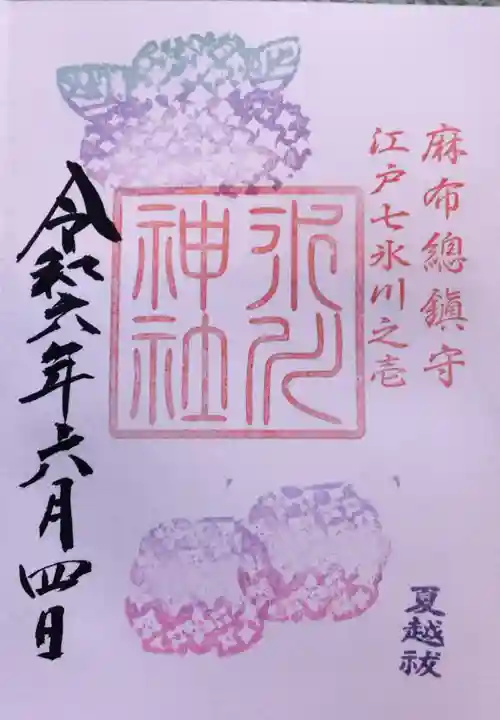 麻布總鎮守
江戸七氷川之壱
氷川
神社
令和六年六月四日
夏越祓